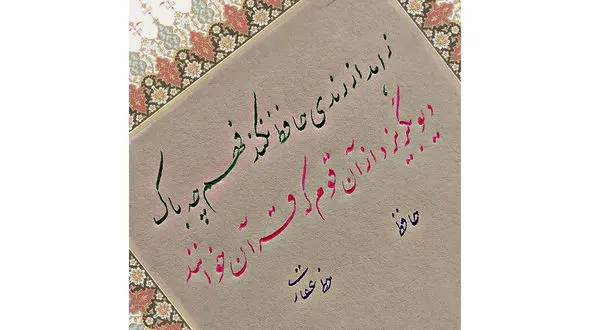 زاهد از رندی حافظ نکند فهم چه باک
دیو بگریزد از آن قوم که قرآن خوانند
حافظ
خط عفارت